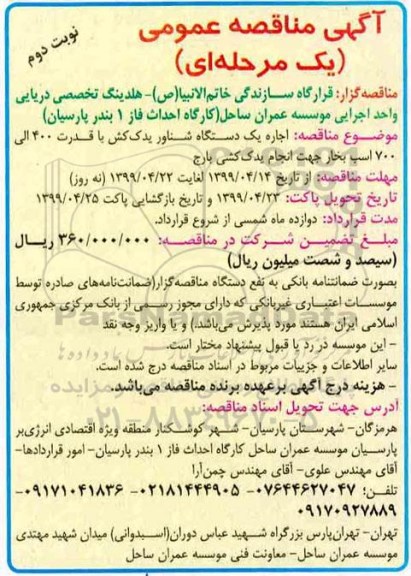 آگهی مناقصه عمومی
(یک مرحله‌ای)
نوبت دوم
مناقصه‌گزار: قرارگاه سازندگی خاتم‌الانبیا(ص)- هلدینگ تخصصی دریایی
واحد اجرایی موسسه عمران ساحل(کارگاه احداث فاز ۱ بندر پارسیان)
موضوع مناقصه: اجاره یک دستگاه شناور یدک‌کش با قدرت ۴۰۰ الی
۷۰۰ اسب بخار جهت انجام یدک‌کشی بارج
مهلت مناقصه: از تاریخ ۱۳۹۹/۰۴/۱۴ لغایت ۱۳۹۹/۰۴/۲۲ (نه روز)
تاریخ تحویل پاکت: ۱۳۹۹/۰۴/۲۳ و تاریخ بازگشایی پاکت ۱۳۹۹/۰۴/۲۵
مدت قرارداد: دوازده ماه شمسی از شروع قرارداد.
مبلغ تضمین شرکت در مناقصه: ۳۶۰/۰۰۰/۰۰۰ ریال
(سیصد و شصت میلیون ریال)
بصورت ضمانتنامه بانکی به نفع دستگاه مناقصه‌گزار(ضمانت‌نامه‌های صادره توسط
موسسات اعتباری غیربانکی که دارای مجوز رسمی از بانک مرکزی جمهوری
اسلامی ایران هستند مورد پذیرش می‌باشد) و یا واریز وجه نقد
- این موسسه در رد یا قبول پیشنهاد مختار است.
سایر اطلاعات و جزییات مربوط در اسناد مناقصه درج شده است.
- هزینه درج آگهی برعهده برنده مناقصه می‌باشد.
آدرس جهت تحویل اسناد مناقصه:
هرمزگان- شهرستان پارسیان- شهر کوشکنار منطقه ویژه اقتصادی انرژی‌بر
پارسیان موسسه عمران ساحل کارگاه احداث فاز ۱ بندر پارسیان- امور قراردادها-
آقای مهندس علوی- آقای مهندس چمن‌آرا
تلفن: ۰۷۶۴۴۶۲۷۰۴۷- ۰۲۱۸۱۴۴۴۹۰۵- ۰۹۱۷۱۰۴۱۸۳۶-
۰۹۱۷۰۹۲۷۸۸۹
تهران- تهران‌پارس بزرگراه شهید عباس دوران(اسبدوانی) میدان شهید مهتدی
موسسه عمران ساحل- معاونت فنی موسسه عمران ساحل